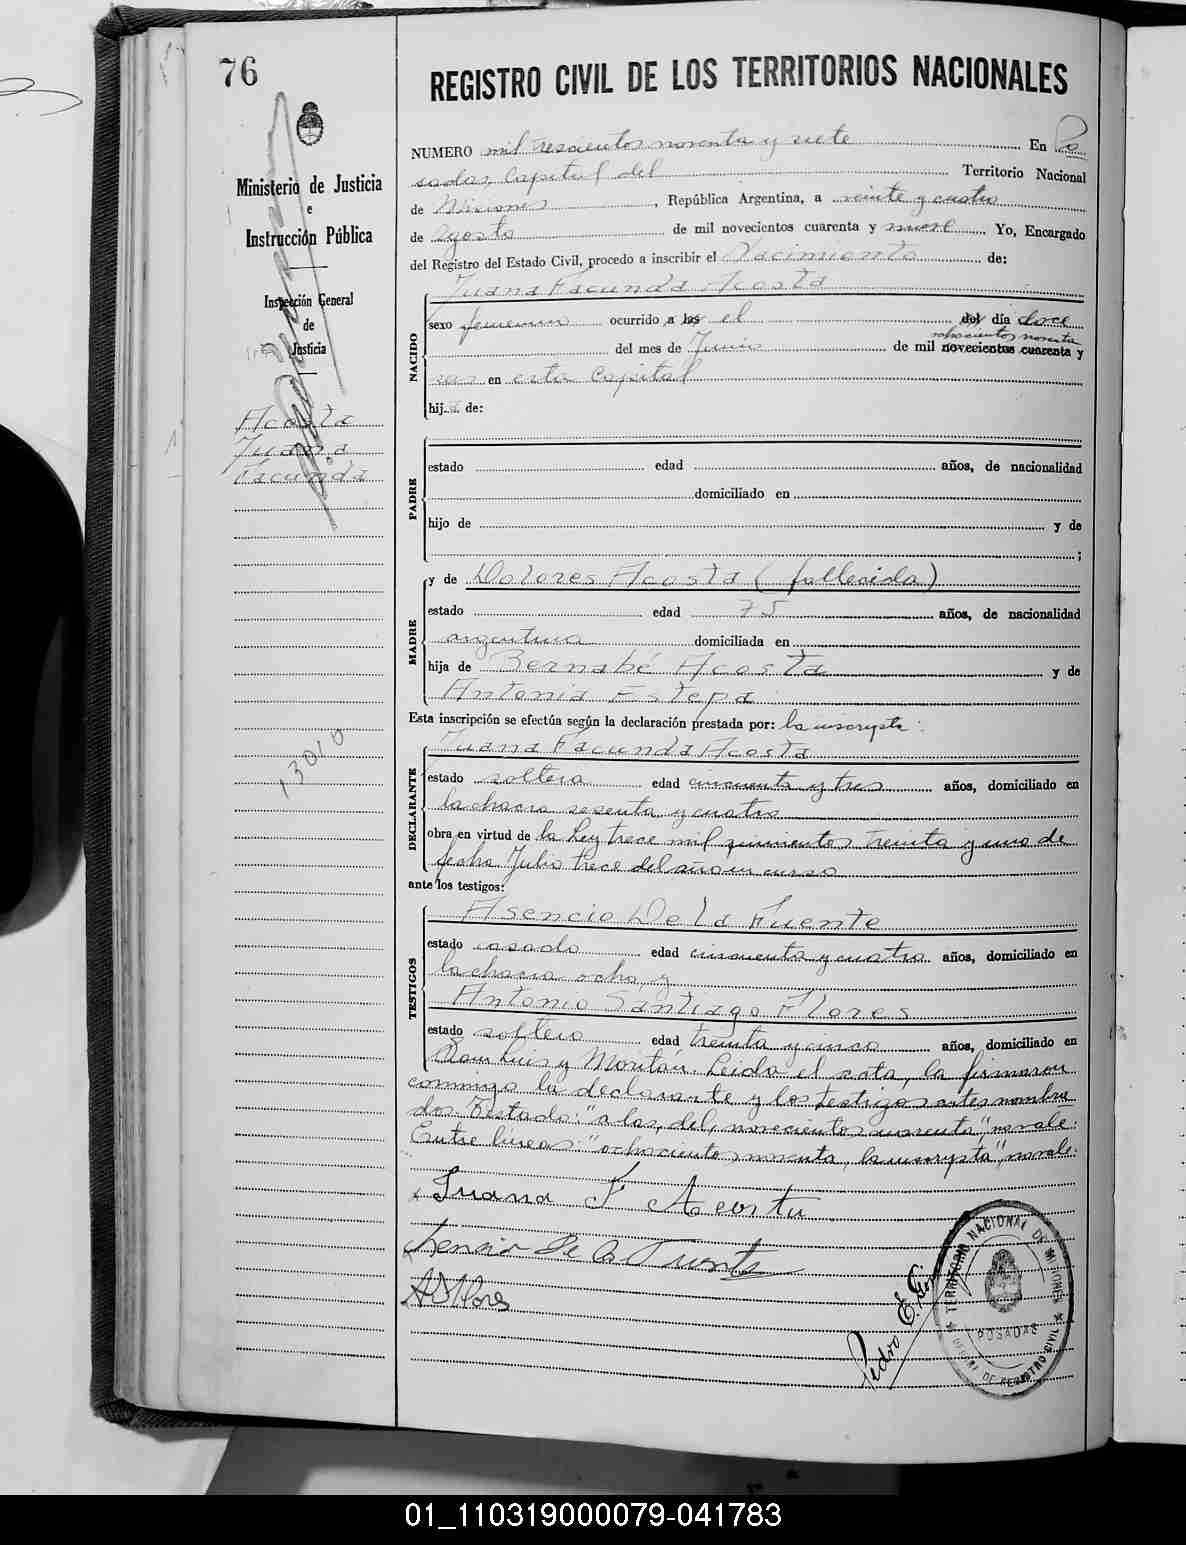 76
REGISTRO CIVIL DE LOS TERRITORIOS NACIONALES
Ministerio de Justicia
e
Instrucción Pública
Inspección General
de
Justicia
Acosta
Juana
Facunda
13010
NUMERO mil trescientos noventa y siete En Po
sadas, Capital del Territorio Nacional
de Misiones, República Argentina, a veinte y cuatro
de Agosto de mil novecientos cuarenta y nueve Yo, Encargado
del Registro del Estado Civil, procedo a inscribir el Nacimiento de:
Juana Facunda Acosta
NACIDO
sexo femenino ocurrido a las el del día doce
ochocientos noventa
del mes de Junio de mil novecientos cuarenta y
seis en esta Capital
hija de:
PADRE
estado edad años, de nacionalidad
domiciliado en
hijo de y de
;
MADRE
y de Dolores Acosta (fallecida)
estado edad 75 años, de nacionalidad
argentina domiciliada en
hija de Bernabé Acosta y de
Antonia Estepa
Esta inscripción se efectúa según la declaración prestada por: la inscripta:
Juana Facunda Acosta
DECLARANTE
estado soltera edad cincuenta y tres años, domiciliado en
la chacra sesenta y cuatro
obra en virtud de la Ley trece mil quinientos treinta y uno de
fecha Julio trece del año en curso
ante los testigos:
TESTIGOS
Asencio De la Fuente
estado casado edad cincuenta y cuatro años, domiciliado en
la chacra ocho, y
Antonio Santiago Flores
estado soltero edad treinta y cinco años, domiciliado en
San Luis y Moritán. Leida el acta, la firmaron
conmigo la declarante y los testigos antes nombra
dos. Testado: "a las, del, novecientos cuarenta", no vale.
Entre líneas: "ochocientos noventa, la inscripta", vale.
Juana F Acosta
Asencio De la Fuente
A S Flores
Pedro E.
TERRITORIO NACIONAL DE MISIONES
POSADAS
DE REGISTRO CIVIL
01_110319000079-041783